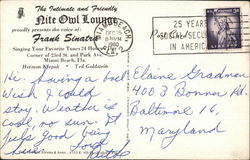 The Intimate and Friendly
Nite Owl Lounge
proudly presents the voice of:
Frank Sinatra
Singing Your Favorite Tunes 24 Hours
Corner of 23rd St. and Park Ave.
Miami Beach, Fla.
Herman • Ted Goldstein
DEC 15
1960
25 YEARS
SOCIAL SECURITY
IN AMERICA
Hi. Having a ball
Wish I could
stay. Weather is
cool, no sun. It
feels good being
Love
Elaine Gradman
4003 Bonner Rd.
Baltimore 16,
Maryland